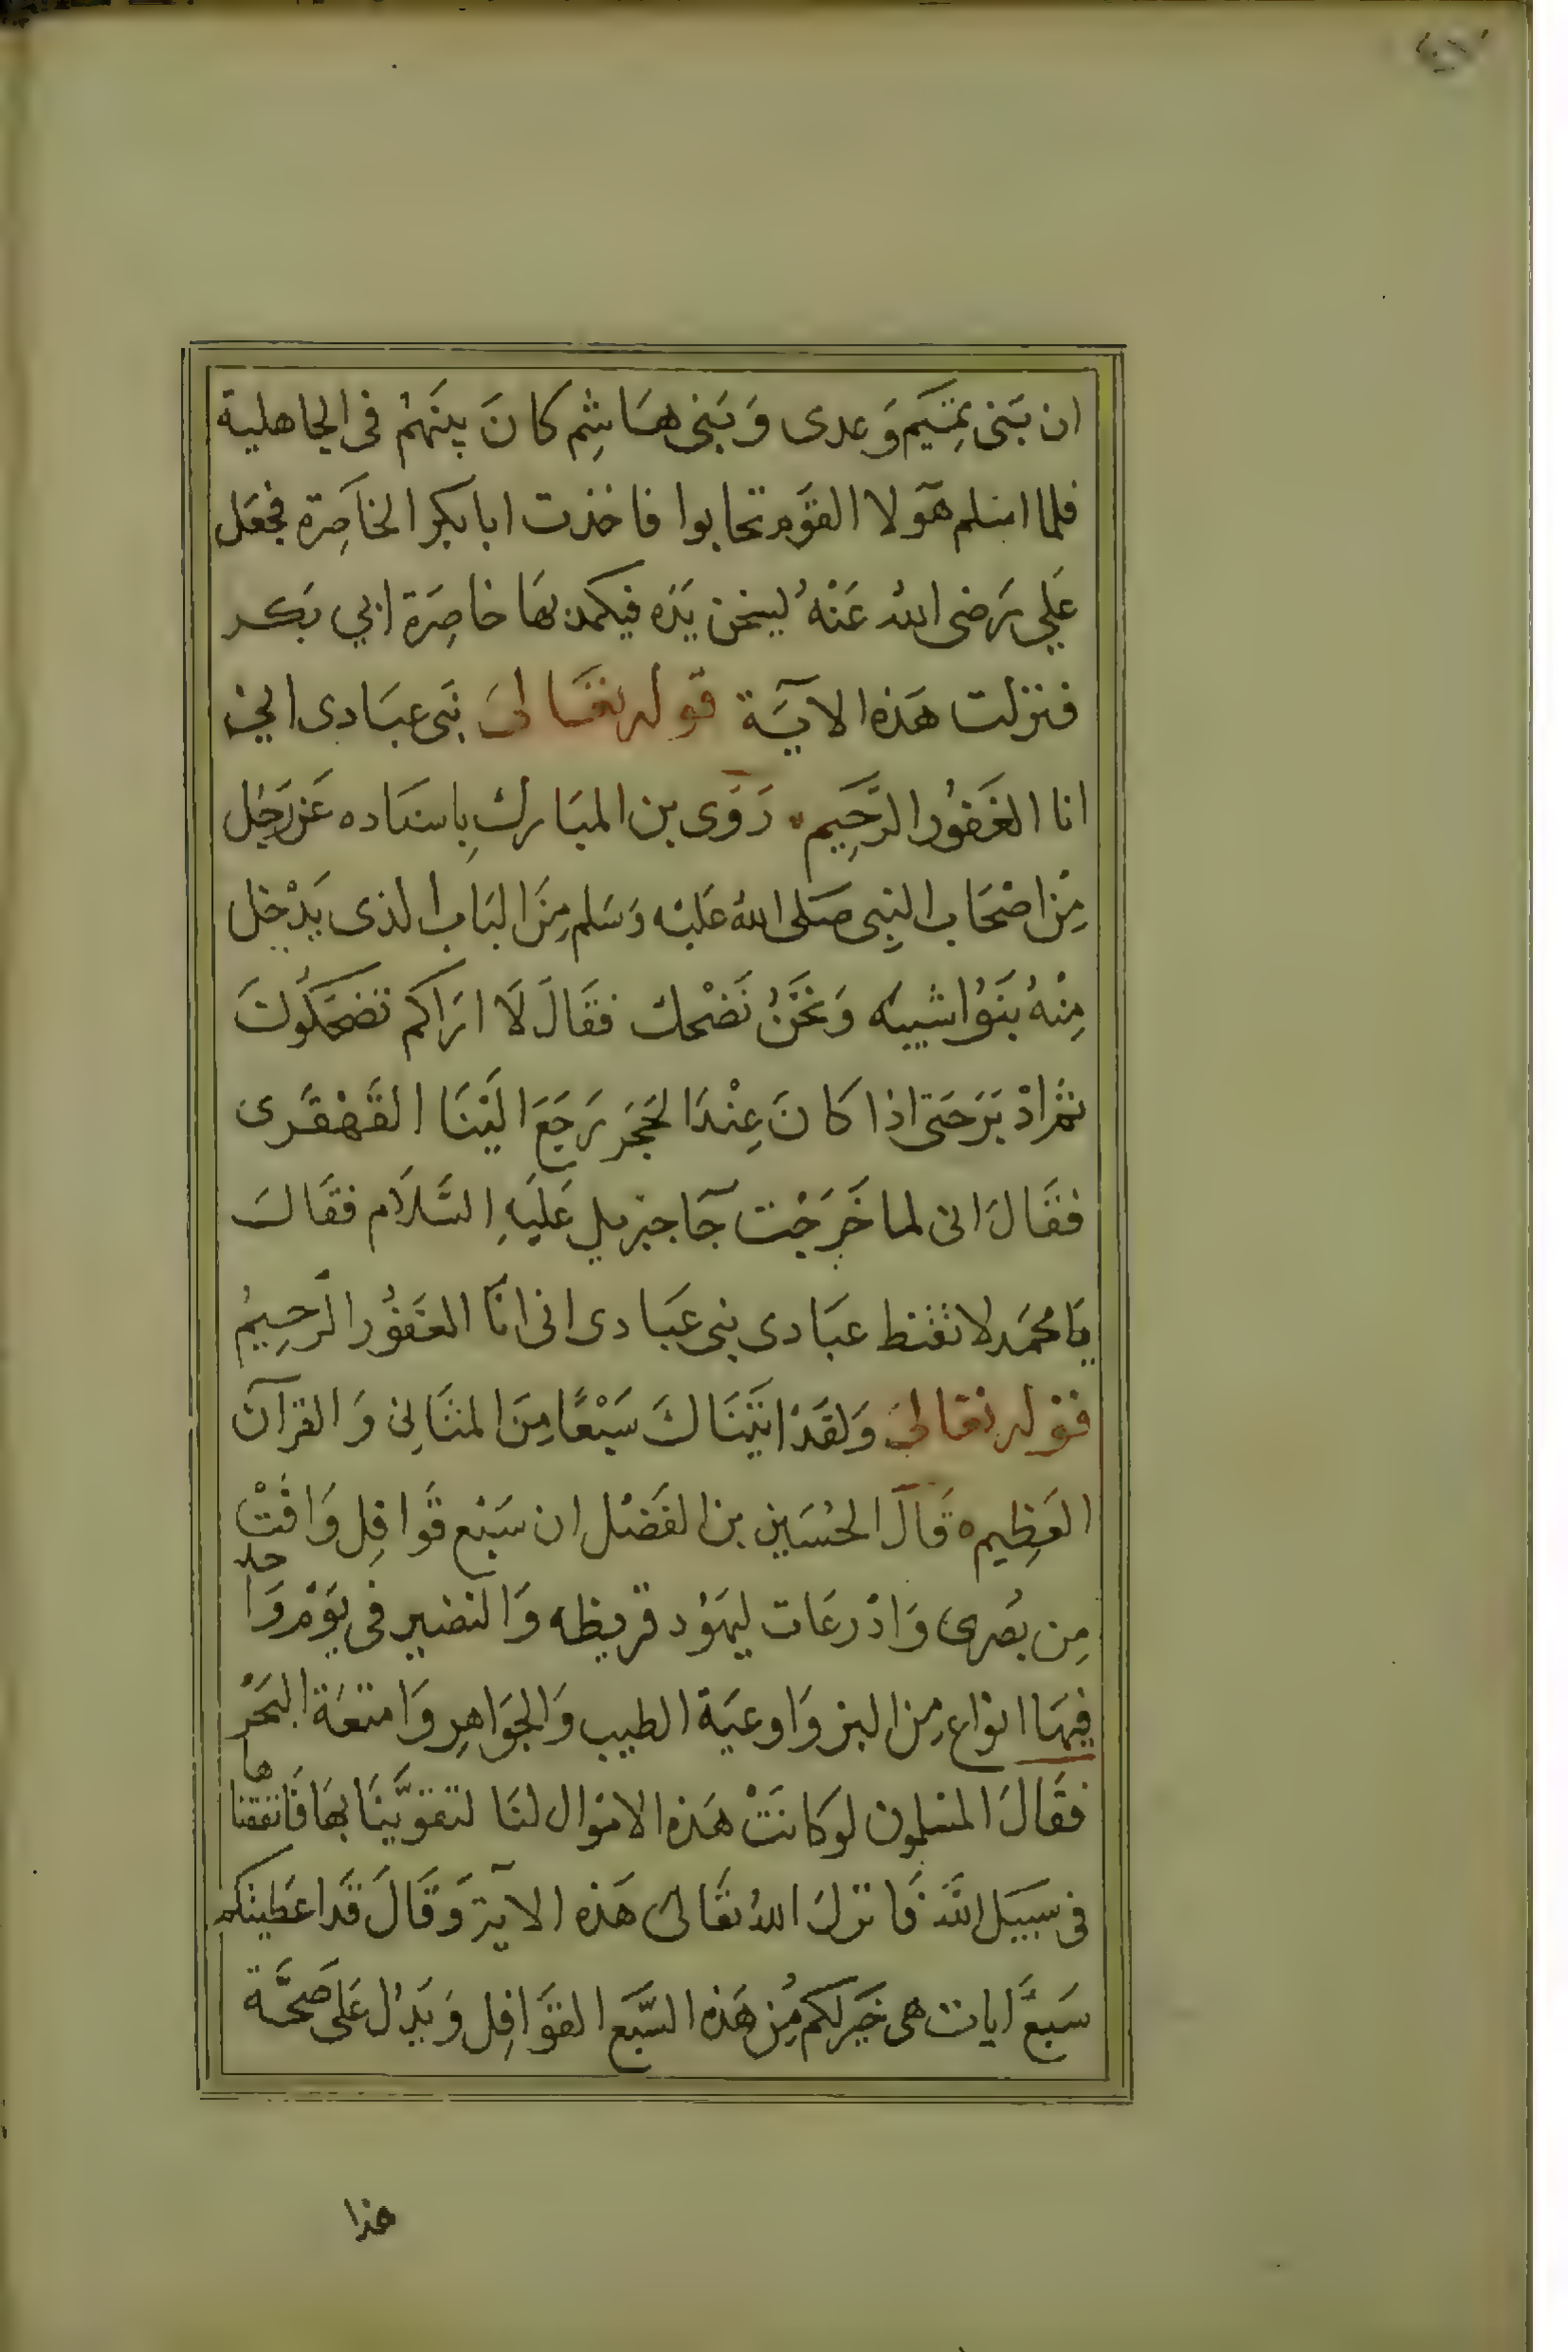 ان بَنى تمِيَم وَعدى وَبَنِى هَاشِم كانَ بينَهُمْ فى الجاهلية
فلما اسْلم هَٓولا القَوم تحابوا فاخذت ابا بكر الخاَصِرَة فجعَل
عَلِي رَضى اللهُ عَنْهُ ليسخن يَدَه فيكمد بهَا خاصِرَة ابي بَكر
فنزلت هَذه الآيَة قوله تعَالىَ نَبى عبَادى اني
انا الغَفُور الرَّحِيم رَوَى بن المبَارك بِاسنَاده عَن رَجُل
مِنْ اصْحَاب النبِى صَلى اللهُ عَليْه وَسَلم مِنَ البَاب الذى يَدْخل
مِنْهُ بَنُوا شيبَه وَنحَنُ نَضْحك فقَالَ لَا ارَاكم تضحكُونَ
ثمَ ادْبَرَ حَتى اذا كانَ عِنْدَ الحَجَر رَجَعَ اليْنَا القَهْقَرى
فقَالَ انى لما خَرَجْت جَآ جبْريل عَليَهِ السَّلَام فقَالَ
يَا محمَد لا تقنط عبَادى نبى عَبَادى انى انَا الغَفُور الرَحِيمُ
قوله تعَالىَ وَلقَدْ اتيَنَاكَ سَبْعًا مِنَ المثَانِى وَالقرآن
العَظِيم ه قَالَ الحُسَين بن الفَضْل ان سَبْع قَوافِل وَافَتْ
مِن بُصرى وَاذْرعَات ليهَوُد قريظه وَالنضير فى يَوْم وَاحد
فِيهَا انوْاع مِن البز وَاوعيَة الطيب وَالجوَاهِر وَامتعَة البَحْر
فقَالَ المسْلمون لو كانَتْ هَذه الامْوال لنَا لتقوَّينَا بهَا فَانفقناها
فى سَبيَل اللهَ فَانزلَ اللهُ تعَالىَ هَذه الآية وَقَالَ قَد اعَطيْتكم
سَبعَ ايات هى خَير لكم مِنْ هَذه السَّبَع القَوَافِل وَيَدُل عَلى صَحَّة
هذا